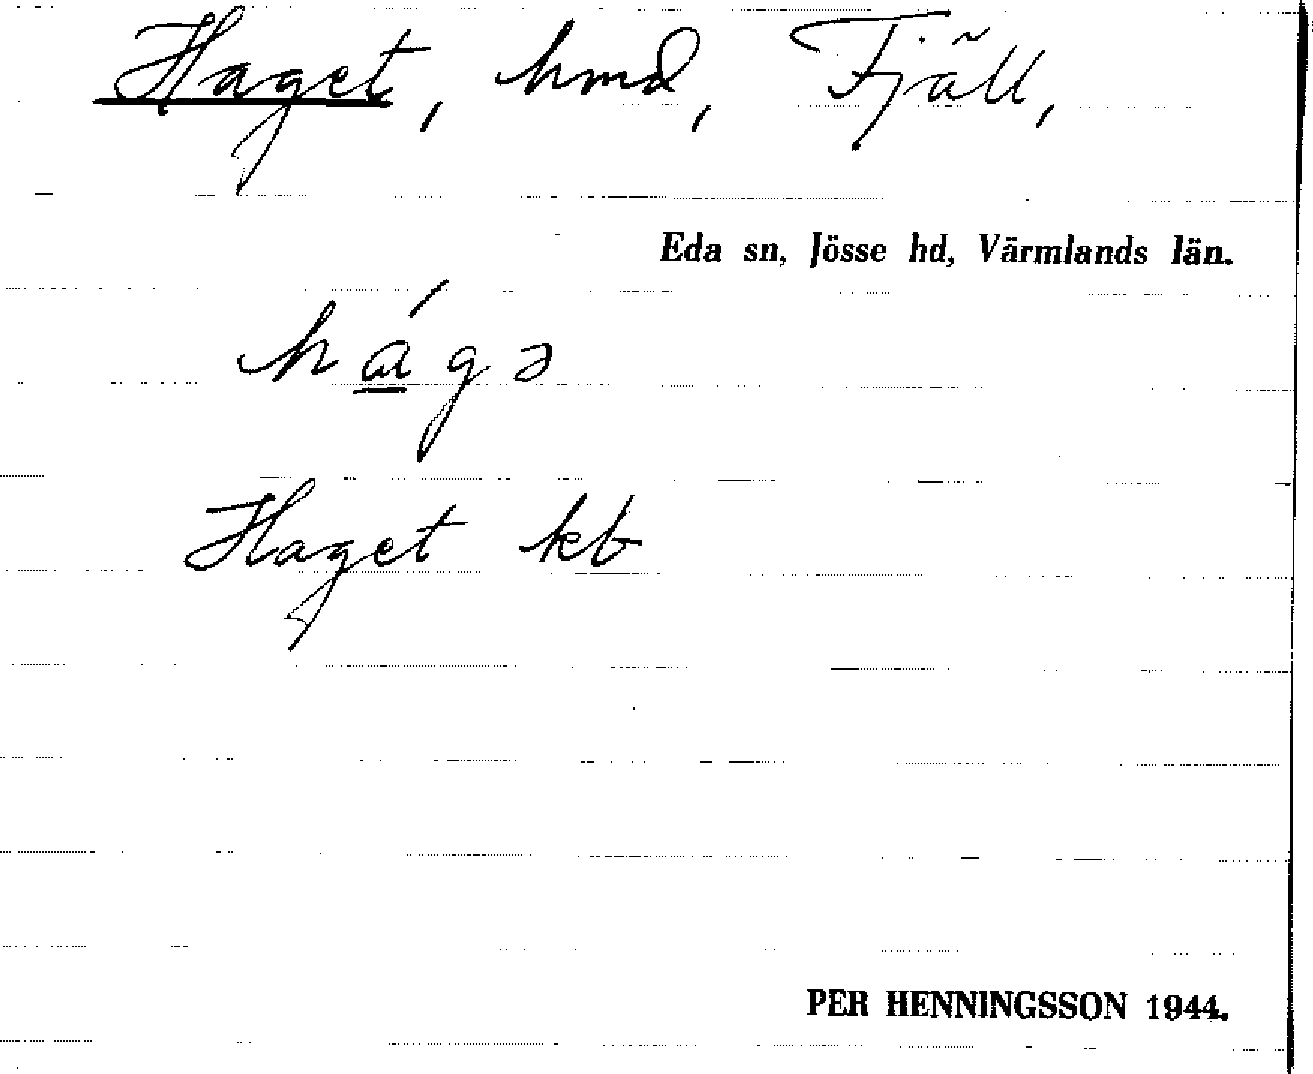 Haget, hmd, Fjäll,
Eda sn, Jösse hd, Värmlands län.
há̱gə
Haget kb
PER HENNINGSSON 1944.